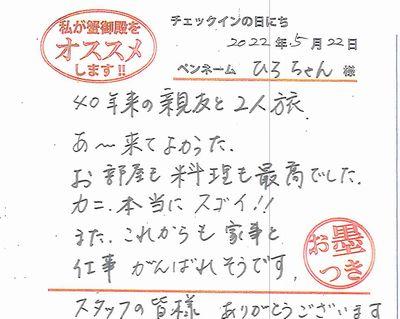 私が蟹御殿を
オススメ
します!!
チェックインの日にち
2022年5月22日
ペンネーム ひろちゃん 様
40年来の親友と2人旅
あ〜来てよかった.
お部屋も料理も最高でした.
カニ.本当にスゴイ!!
また.これからも家事と
仕事がんばれそうです.
お墨
つき
スタッフの皆様 ありがとうございます